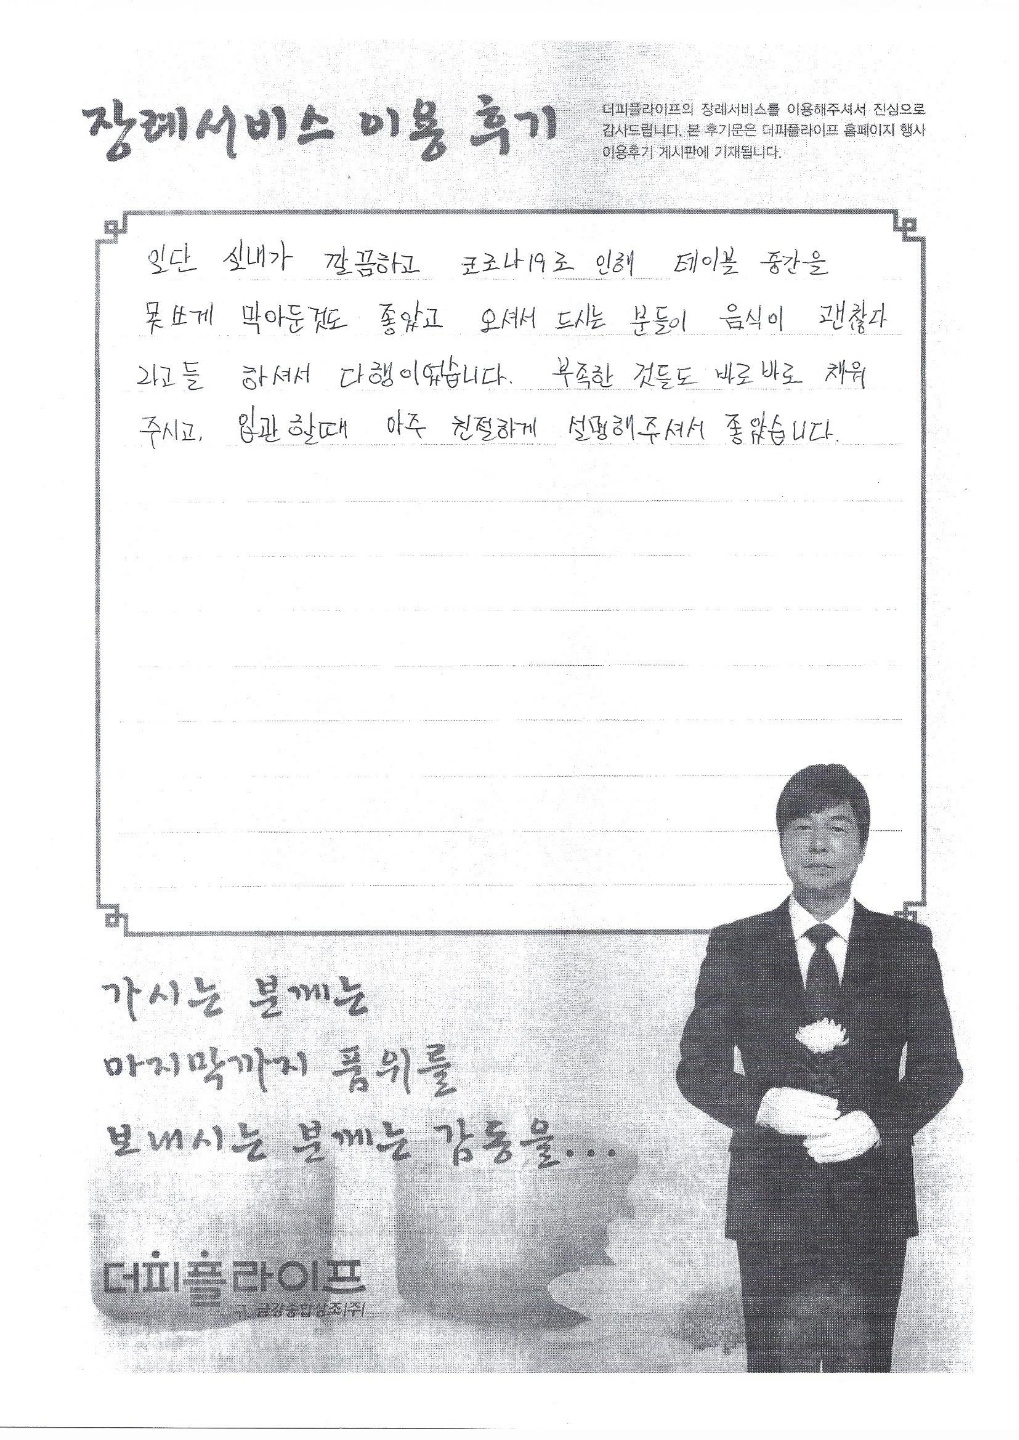 장례서비스 이용 후기
더피플라이프의 장례서비스를 이용해주셔서 진심으로
감사드립니다. 본 후기문은 더피플라이프 홈페이지 행사
이용후기 게시판에 기재됩니다.
일단 실내가 깔끔하고 코로나19로 인해 테이블 중간을
못쓰게 막아둔것도 좋았고 오셔서 드시는 분들이 음식이 괜찮다
라고들 하셔서 다행이였습니다. 부족한 것들도 바로바로 채워
주시고, 입관할때 아주 친절하게 설명해주셔서 좋았습니다.
가시는 분께는
마지막까지 품위를
보내시는 분께는 감동을...
더피플라이프
구. 금강종합상조(주)